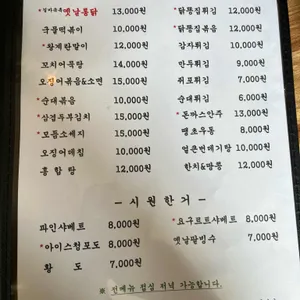 *옛날통닭 13,000원
국물떡볶이 10,000원
*왕계란말이 12,000원
꼬치어묵탕 14,000원
오징어볶음&소면 15,000원
*순대볶음 10,000원
*삼겹두부김치 15,000원
*모듬소세지 15,000원
오징어데침 10,000원
홍합탕 12,000원
*닭똥집튀김 12,000원
*닭똥집볶음 12,000원
감자튀김 10,000원
만두튀김 9,000원
쥐포튀김 7,000원
순대튀김 6,000원
*돈까스안주 13,000원
땡초우동 8,000원
얼큰번데기탕 10,000원
한치&땅콩 12,000원
- 시원한거 -
파인샤베트 8,000원
*아이스청포도 8,000원
황도 7,000원
*요구르트샤베트 8,000원
옛날팥빙수 7,000원
※ 전메뉴 점심 저녁 가능합니다.